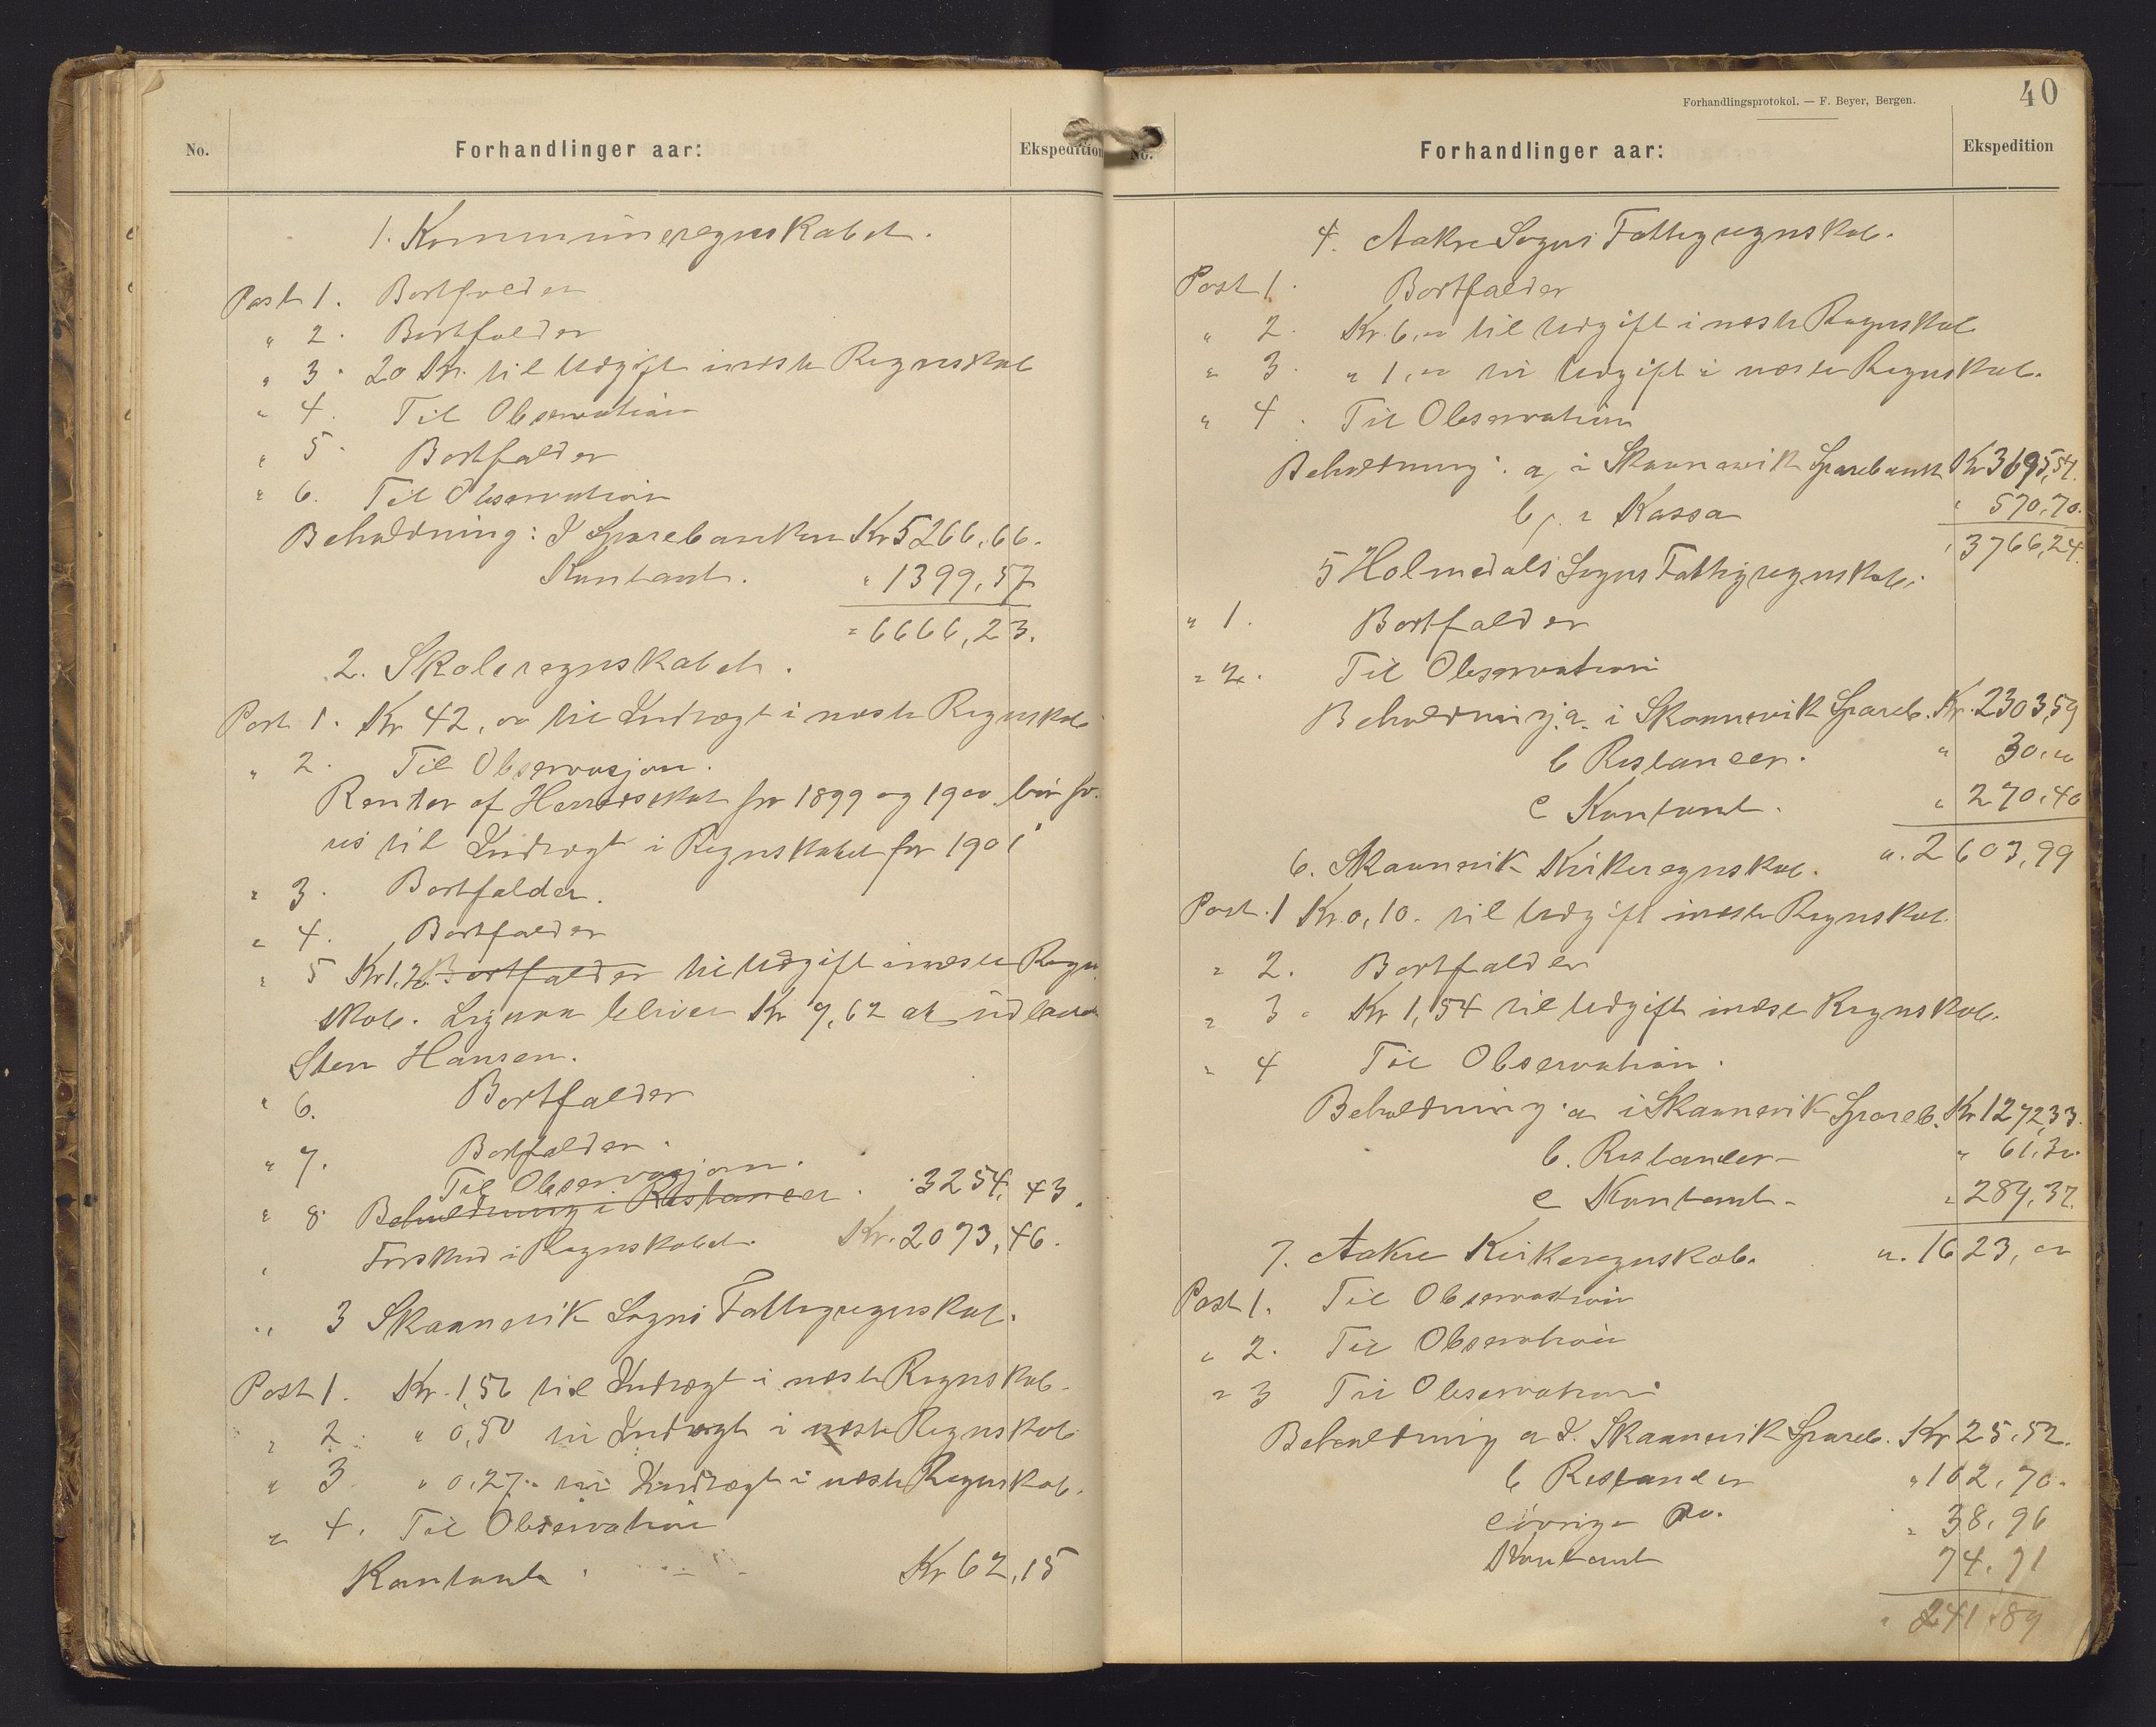 No.
Forhandlinger aar:
Ekspedition
1. Kommuneregnskabet.
Post 1. Bortfalder
" 2. Bortfalder
" 3. 20 Kr. til Udgift i næste Regnskab
" 4. Til Observation
" 5. Bortfalder
" 6. Til Observation
Beholdning: I Sparebanken Kr 5266,66.
Kontant. " 1399,57
" 6666,23.
2. Skoleregnskabet.
Post 1. Kr 42,00 til Indtægt i næste Regnskab
" 2. Til Observasjon.
Renter af Herredsskat for 1899 og 1900 bør fø-
res til Indtægt i Regnskabet for 1901
" 3. Bortfalder.
" 4. Bortfalder
" 5 Kr 1,20 Bortfalder til Udgift i næste Regn
skab. bliver Kr 9,62 at
Sten Hansen.
" 6. Bortfalder
" 7. Bortfalder.
Til Observasjon.
" 8. Beholdning i Restancer. 3254,43.
" Forskud i Regnskabet. Kr. 2073,46.
" 3 Skaanevik Sogns Fattigregnskab.
Post 1. Kr. 1,56 til Indtægt i næste Regnskab.
" 2. " 0,50 til Indtægt i næste Regnskab
" 3. " 0,27 til Indtægt i næste Regnskab.
" 4. Til Observation
Kontant Kr 62,15
Forhandlingsprotokol. — F. Beyer, Bergen.
40
No.
Forhandlinger aar:
Ekspedition
4. Aakre Sogns Fattigregnskab.
Post 1. Bortfalder
" 2. Kr. 6,00 til Udgift i næste Regnskab
" 3. " 1,00 til Udgift i næste Regnskab.
" 4. Til Observation
Beholdning: a, i Skaanevik Sparebank Kr 3695,54.
b, i Kassa " 570,70.
" 3766,24.
5 Holmedals Sogns Fattigregnskab.
" 1. Bortfalder
" 2. Til Observation
Beholdning: a. i Skaanevik Spareb. Kr. 2303,59
b Restancer. " 30,00
c Kontant. " 270,40
" 2603,99
6. Skaanevik Kirkeregnskab.
Post. 1 Kr. 0,10. til Udgift i næste Regnskab
" 2. Bortfalder
" 3. Kr 1,54 til Udgift i næste Regnskab.
" 4 Til Observation.
Beholdning: a i Skaanevik Spareb. Kr 1272,33.
b. Restancer " 61,30.
c Kontant " 289,37.
" 1623,00
7. Aakre Kirkeregnskab.
Post 1. Til Observation
" 2. Til Observation
" 3 Til Observation
Beholdning a I. Skaanevik Spareb. Kr 25,52.
b Restancer " 102,70.
c øvrige Do. " 38,96
Kontant 74,71
" 241,89